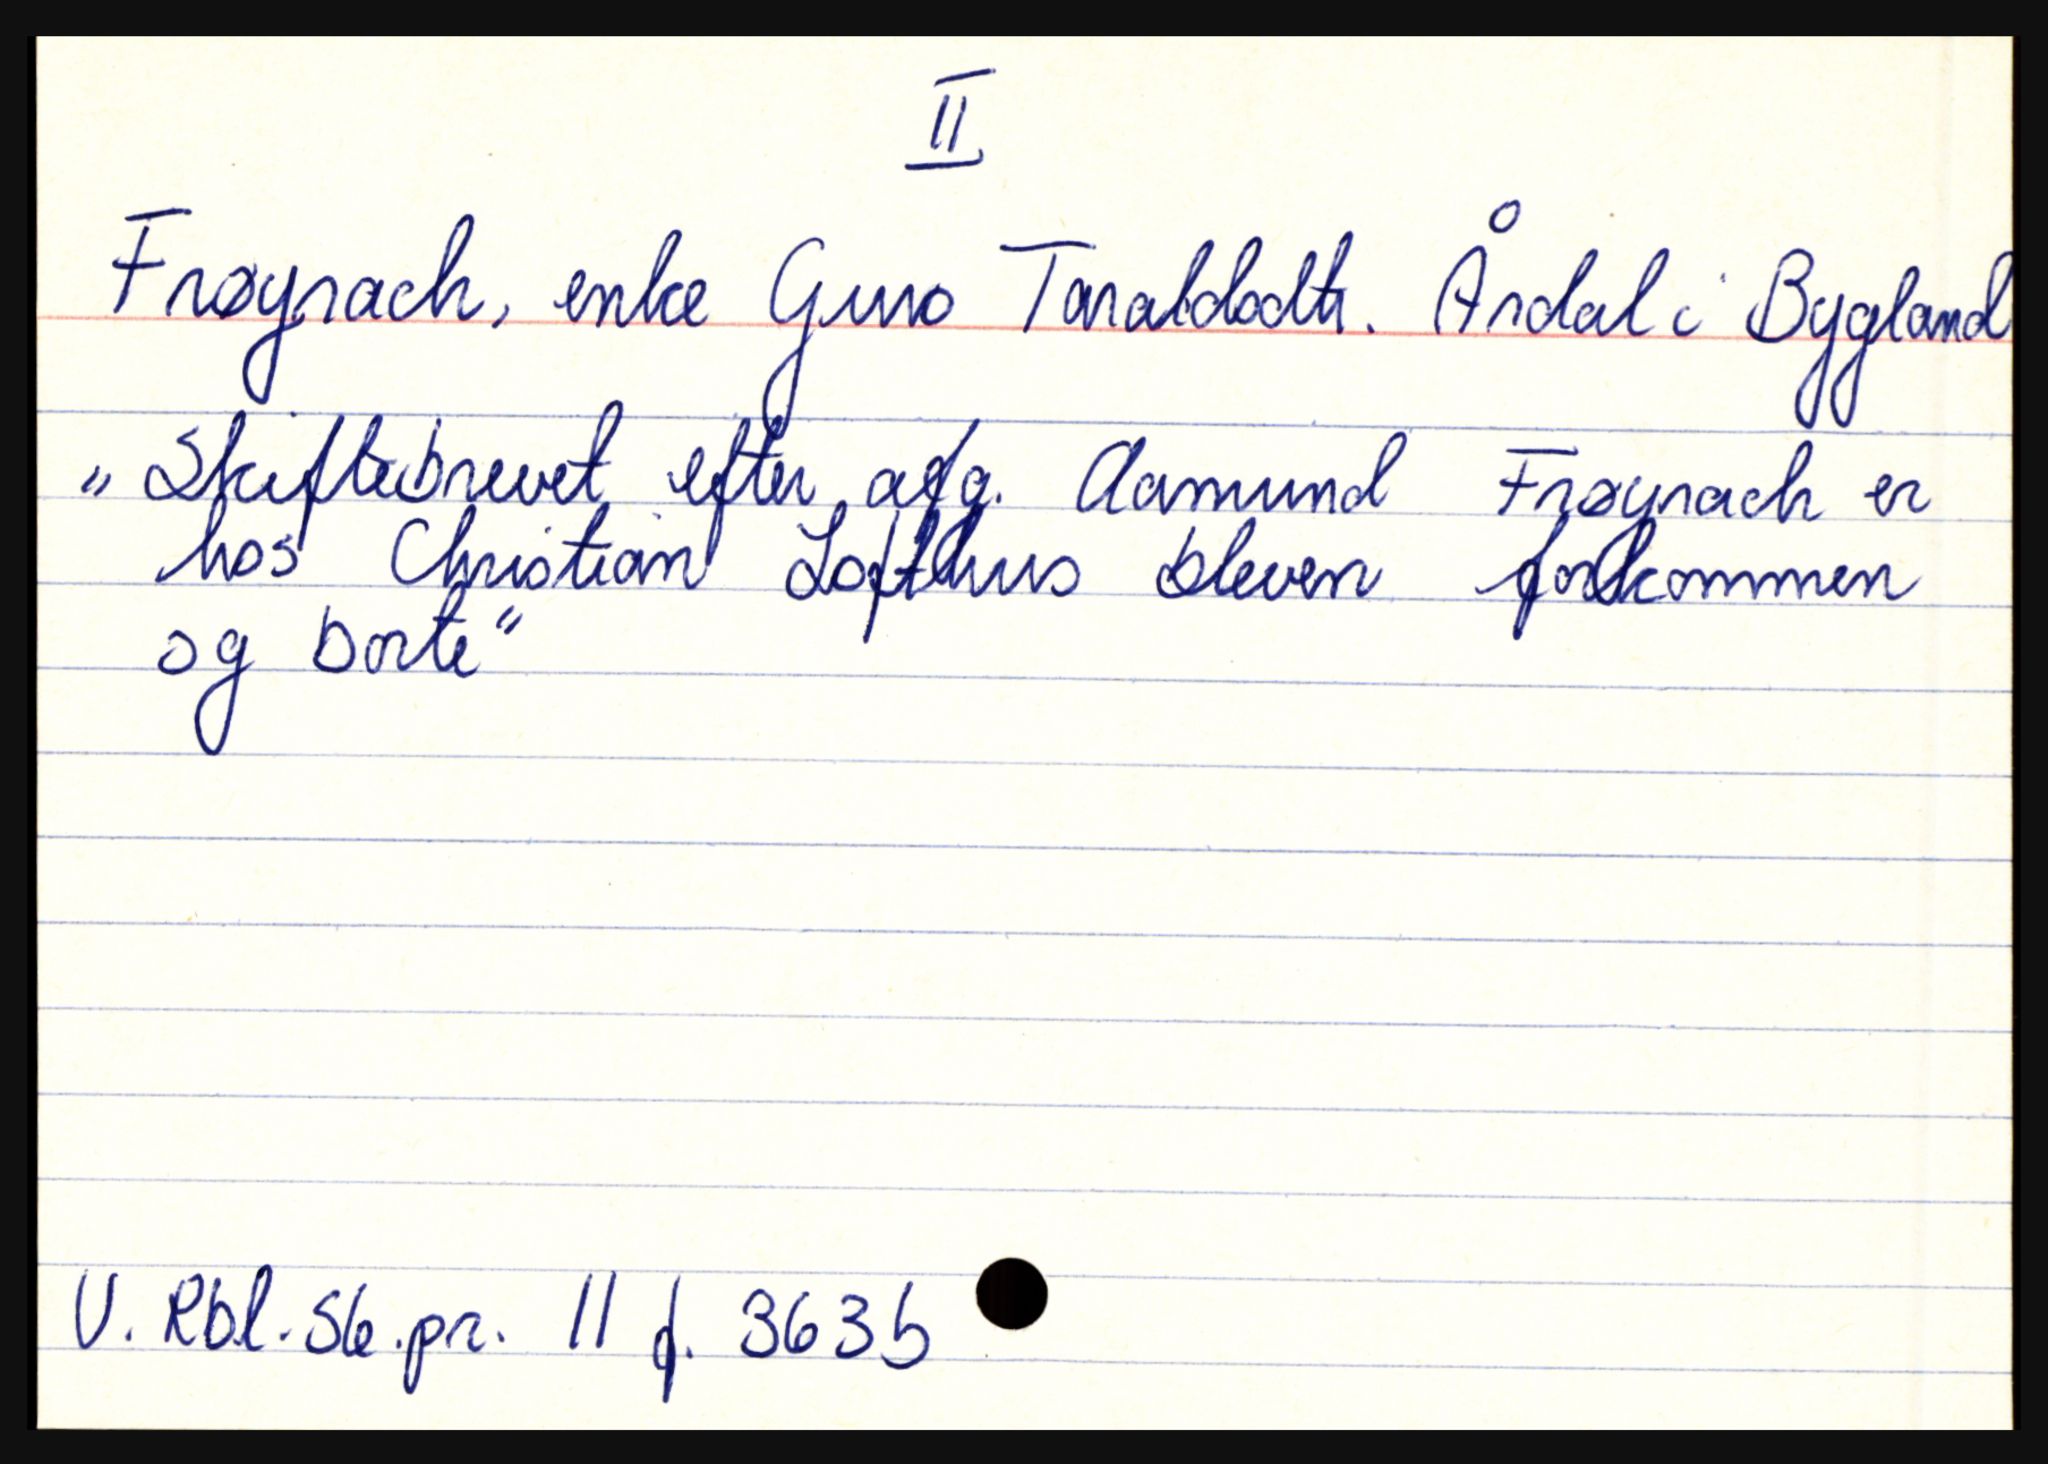 II
Frøyrach, enke Guro Taraldsdtr. Årdal i Bygland
"Skiftebrevet efter afg. Aamund Frøyrach er
hos Christian Lofthus bleven forkommen
og borte"
V. Rbl. Sk.pr. 11 f. 363b